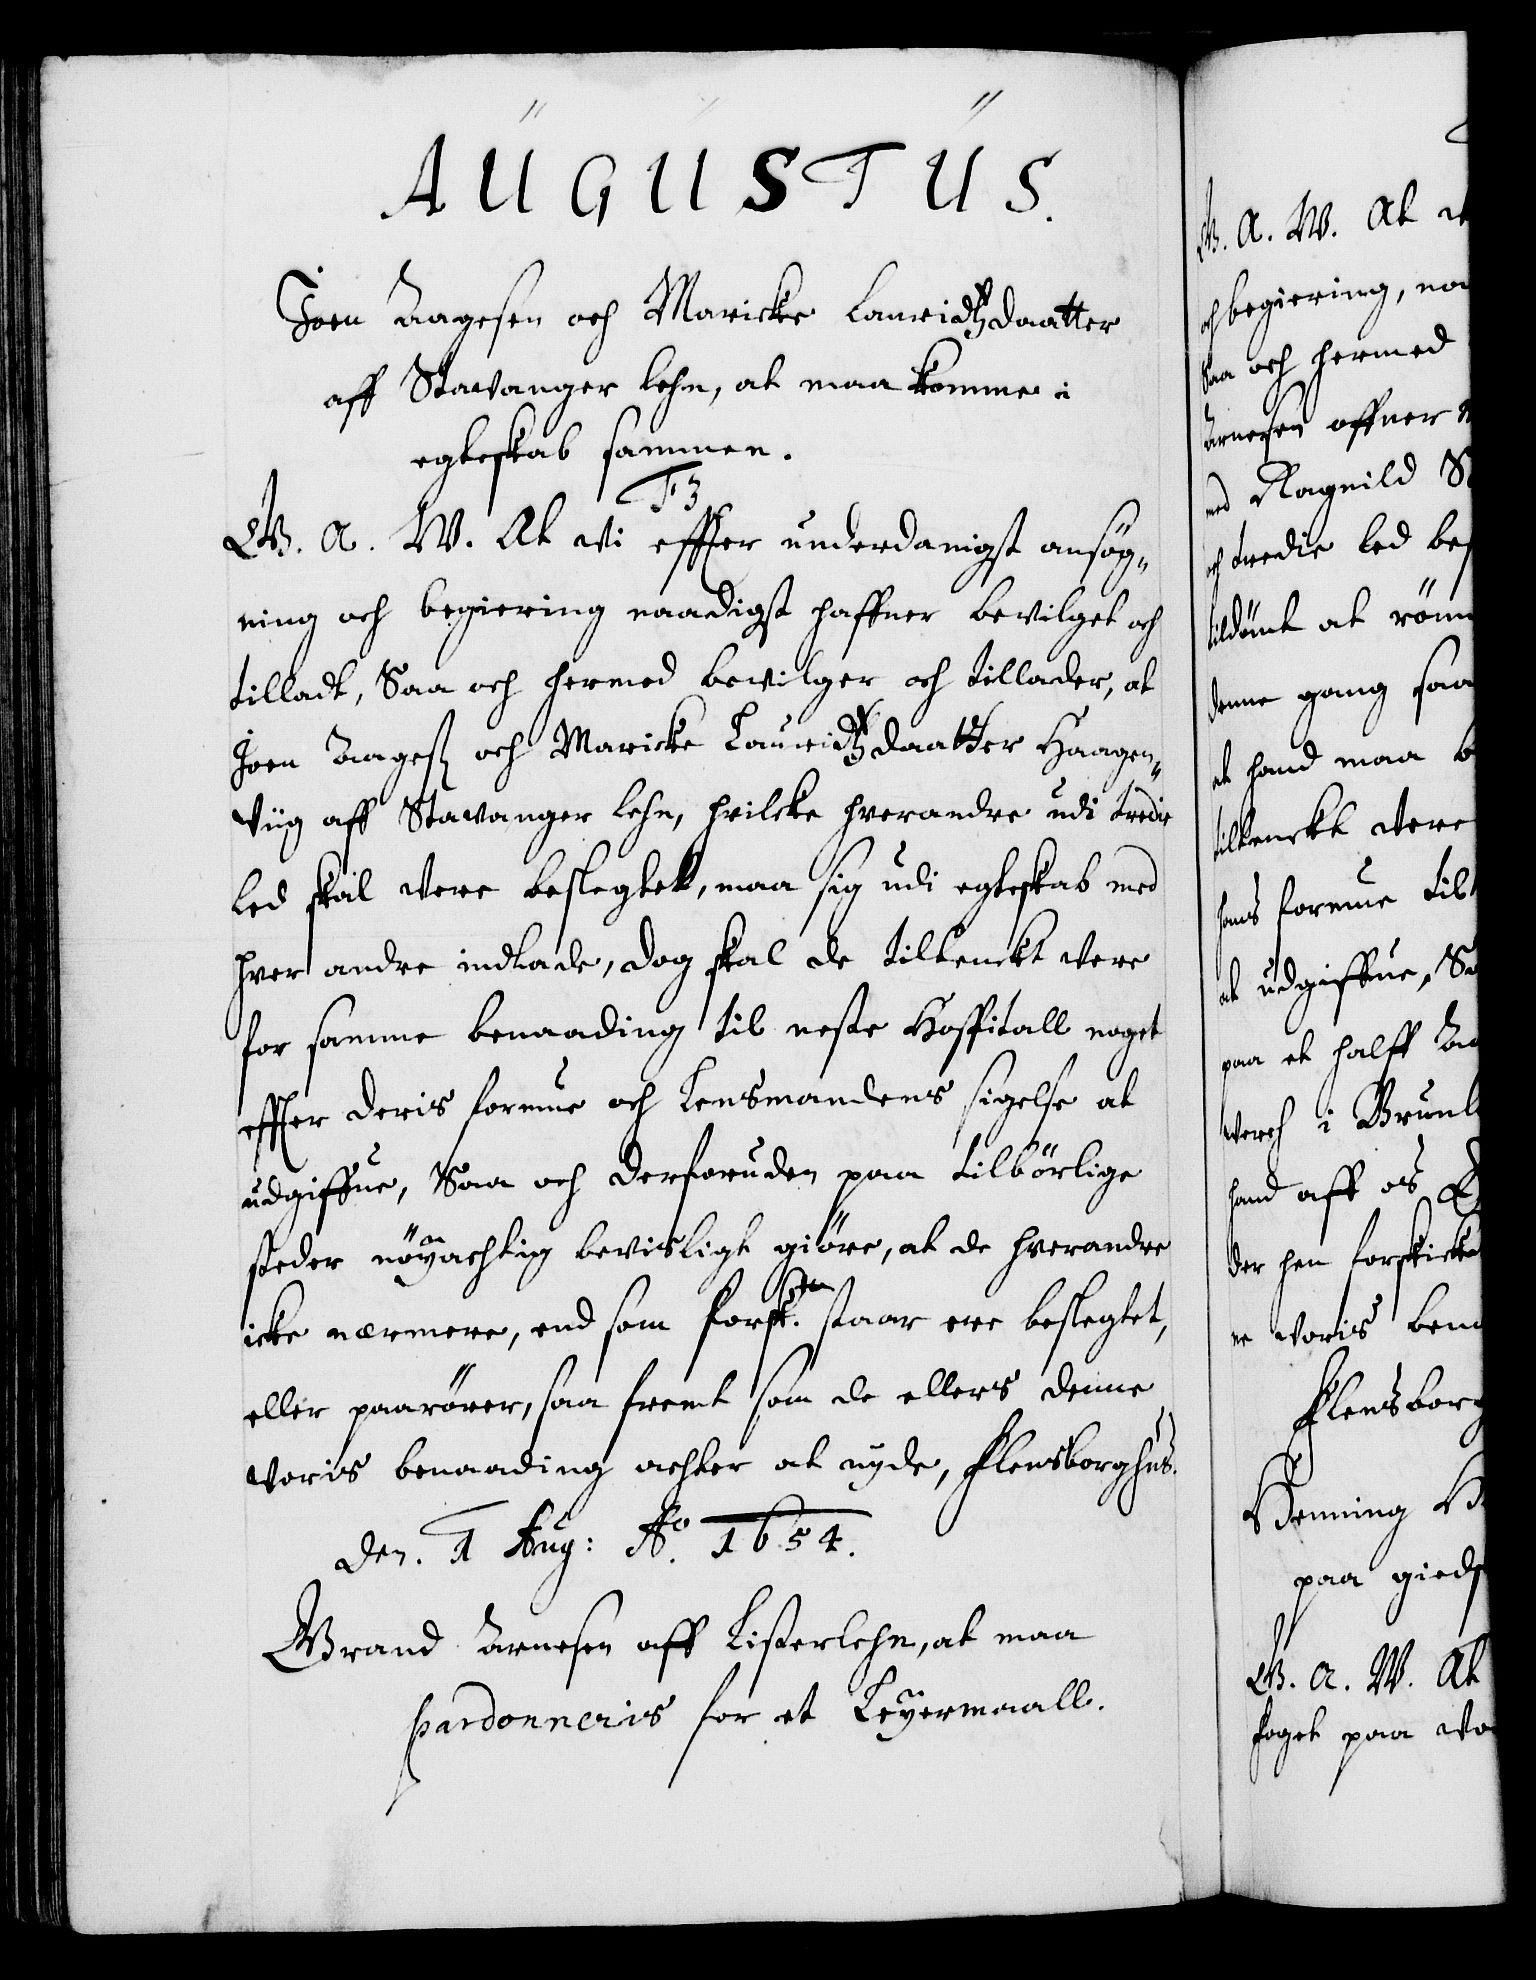 AUGUSTUS.
Joen Aagesen och Maricke Lauridtzdaatter
aff Stavanger lehn, at maa komme i
egteskab sammen.
F3
G. A. W. At vi effter underdanigst ansøg„
ning och begiering naadigst haffuer bevilget och
tilladt, Saa och hermed bevilger och tillader, at
Joen Aages: och Maricke Lauridtzdaatter Haagen„
viig aff Stavanger lehn, hvilcke hverandre udi tredie
led skal vere beslegtet, maa sig udi egteskab med
hver andre indlade, dog skal de tiltenckt vere
for samme benaading til neste Hospitall noget
effter deris formue och Lensmandens sigelse at
udgiffue, Saa och derforuden paa tilbørlige
steder nøyachtig bevisligt giøre, at de hverandre
icke nærmere, end som forsk:ten staar ere beslegtet,
eller paarører, saa fremt som de ellers denne
voris benaading achter at nyde, Flensborghus.
den. 1 Aug: Ao. 1654.
Brand Arnesen aff Listerlehn, at maa
pardonneris for et Leyermaall.
G. A. W. At
och begiering, naa
Saa och hermed
Arnesen offuer
med Ragnild
och tredie led bes
tildømt at røm
denne gang saa
at hand maa
tiltenckt vere
hans formue til
at udgiffue, Sa
paa et halff Aa
verch i Brunl
hand aff os
der hen forskicke
ne voris bena
Flensborg
Henning
paa gieds
G. A. W. At
foget paa vo